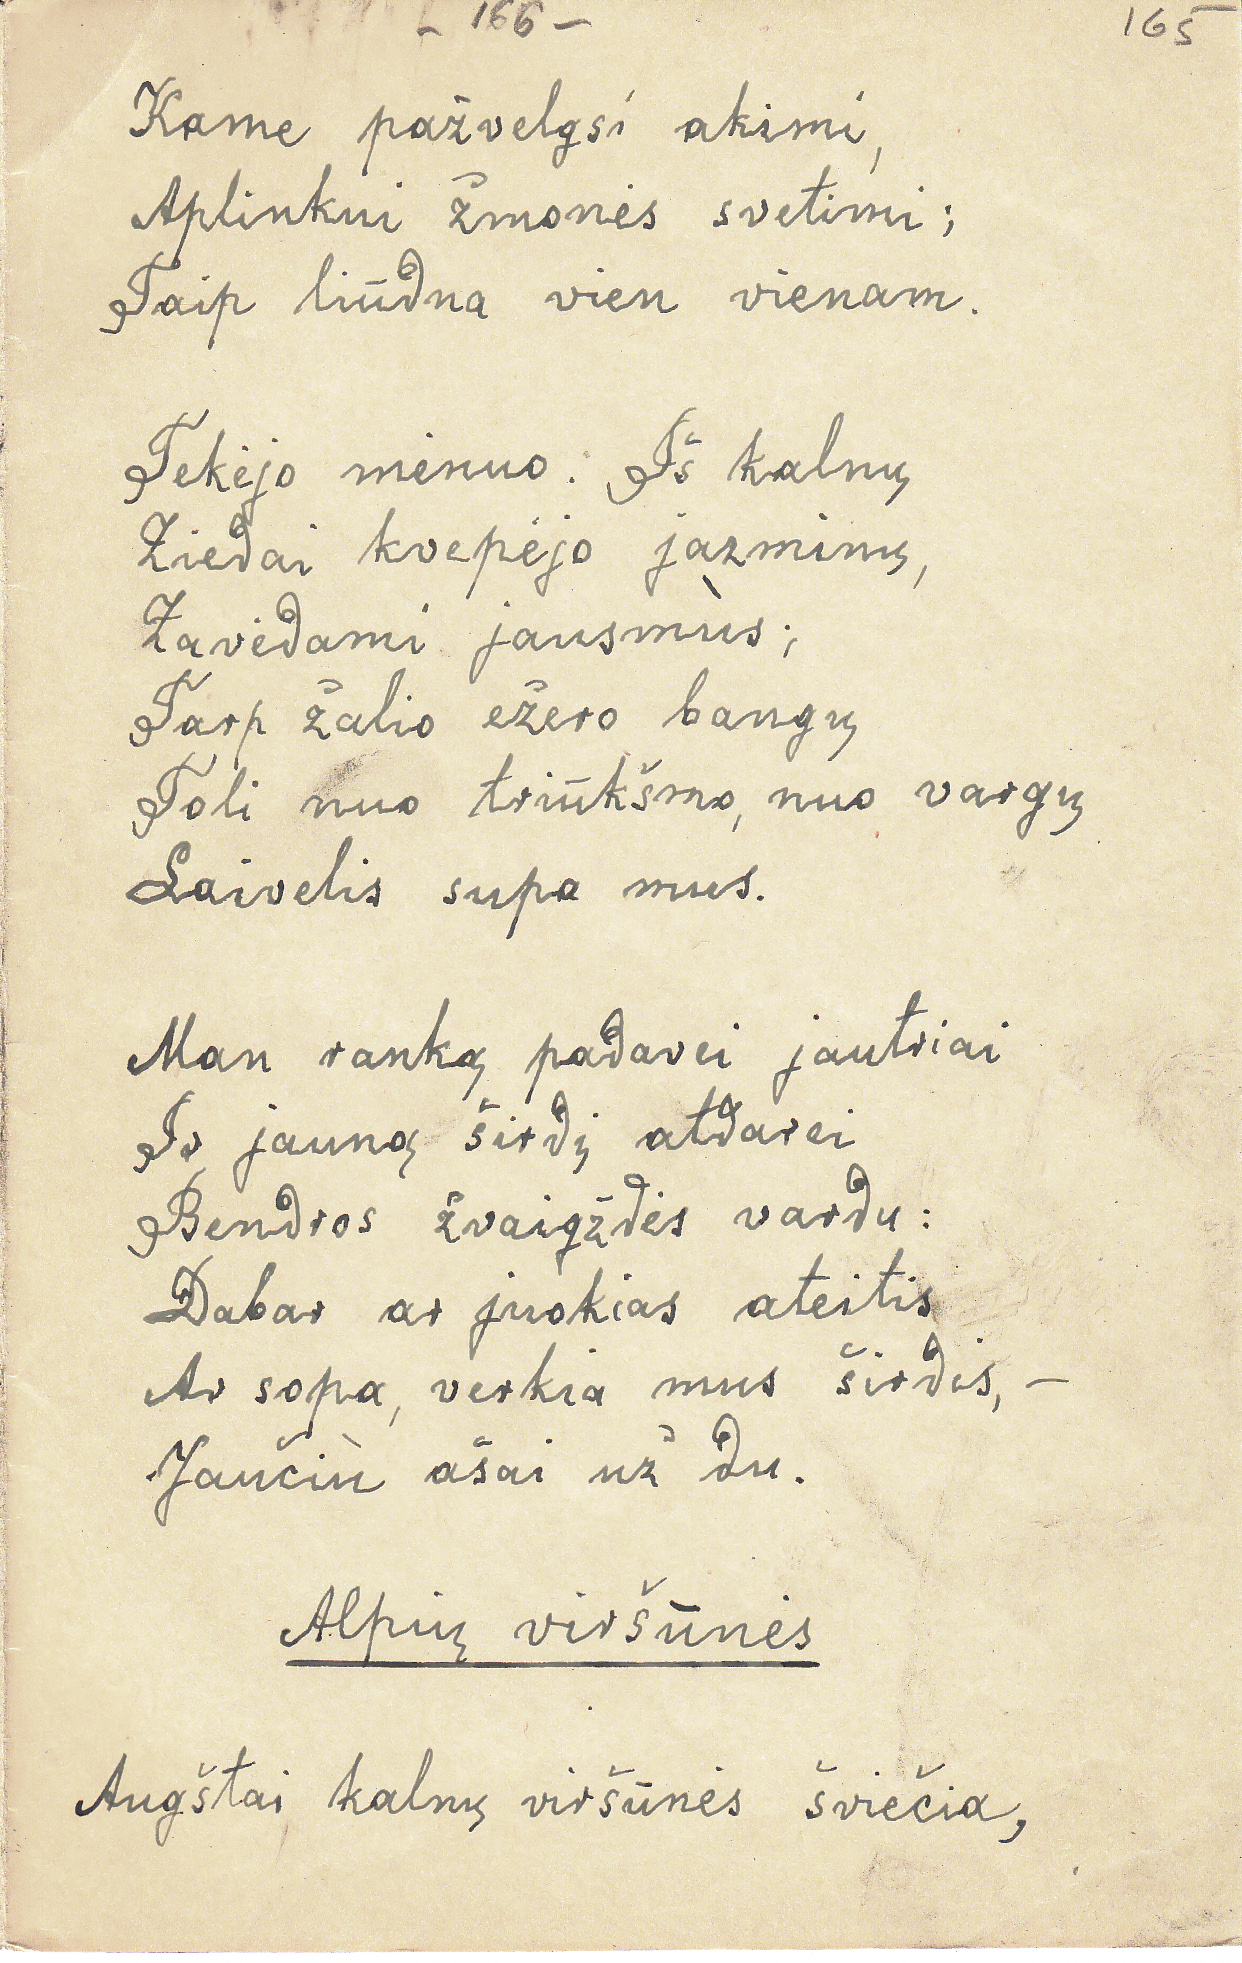 - 166 -
165
Kame pažvelgsi akimi,
Aplinkui žmonės svetimi;
Taip liūdna vien vienam.
Tekėjo mėnuo. Iš kalnų
Žiedai kvepėjo jazminų,
Žavėdami jausmùs;
Tarp žalio ežero bangų
Toli nuo triūkšmo, nuo vargų
Laivelis supa mus.
Man ranką padavei jautriai
Ir jauną širdį atdarei
Bendros žvaigždės vardu:
Dabar ar juokias ateitis
Ar sopa, verkia mus širdis, —
Jaučiù ašai už du.
Alpių viršūnės
Augštai kalnų viršūnės šviečia,